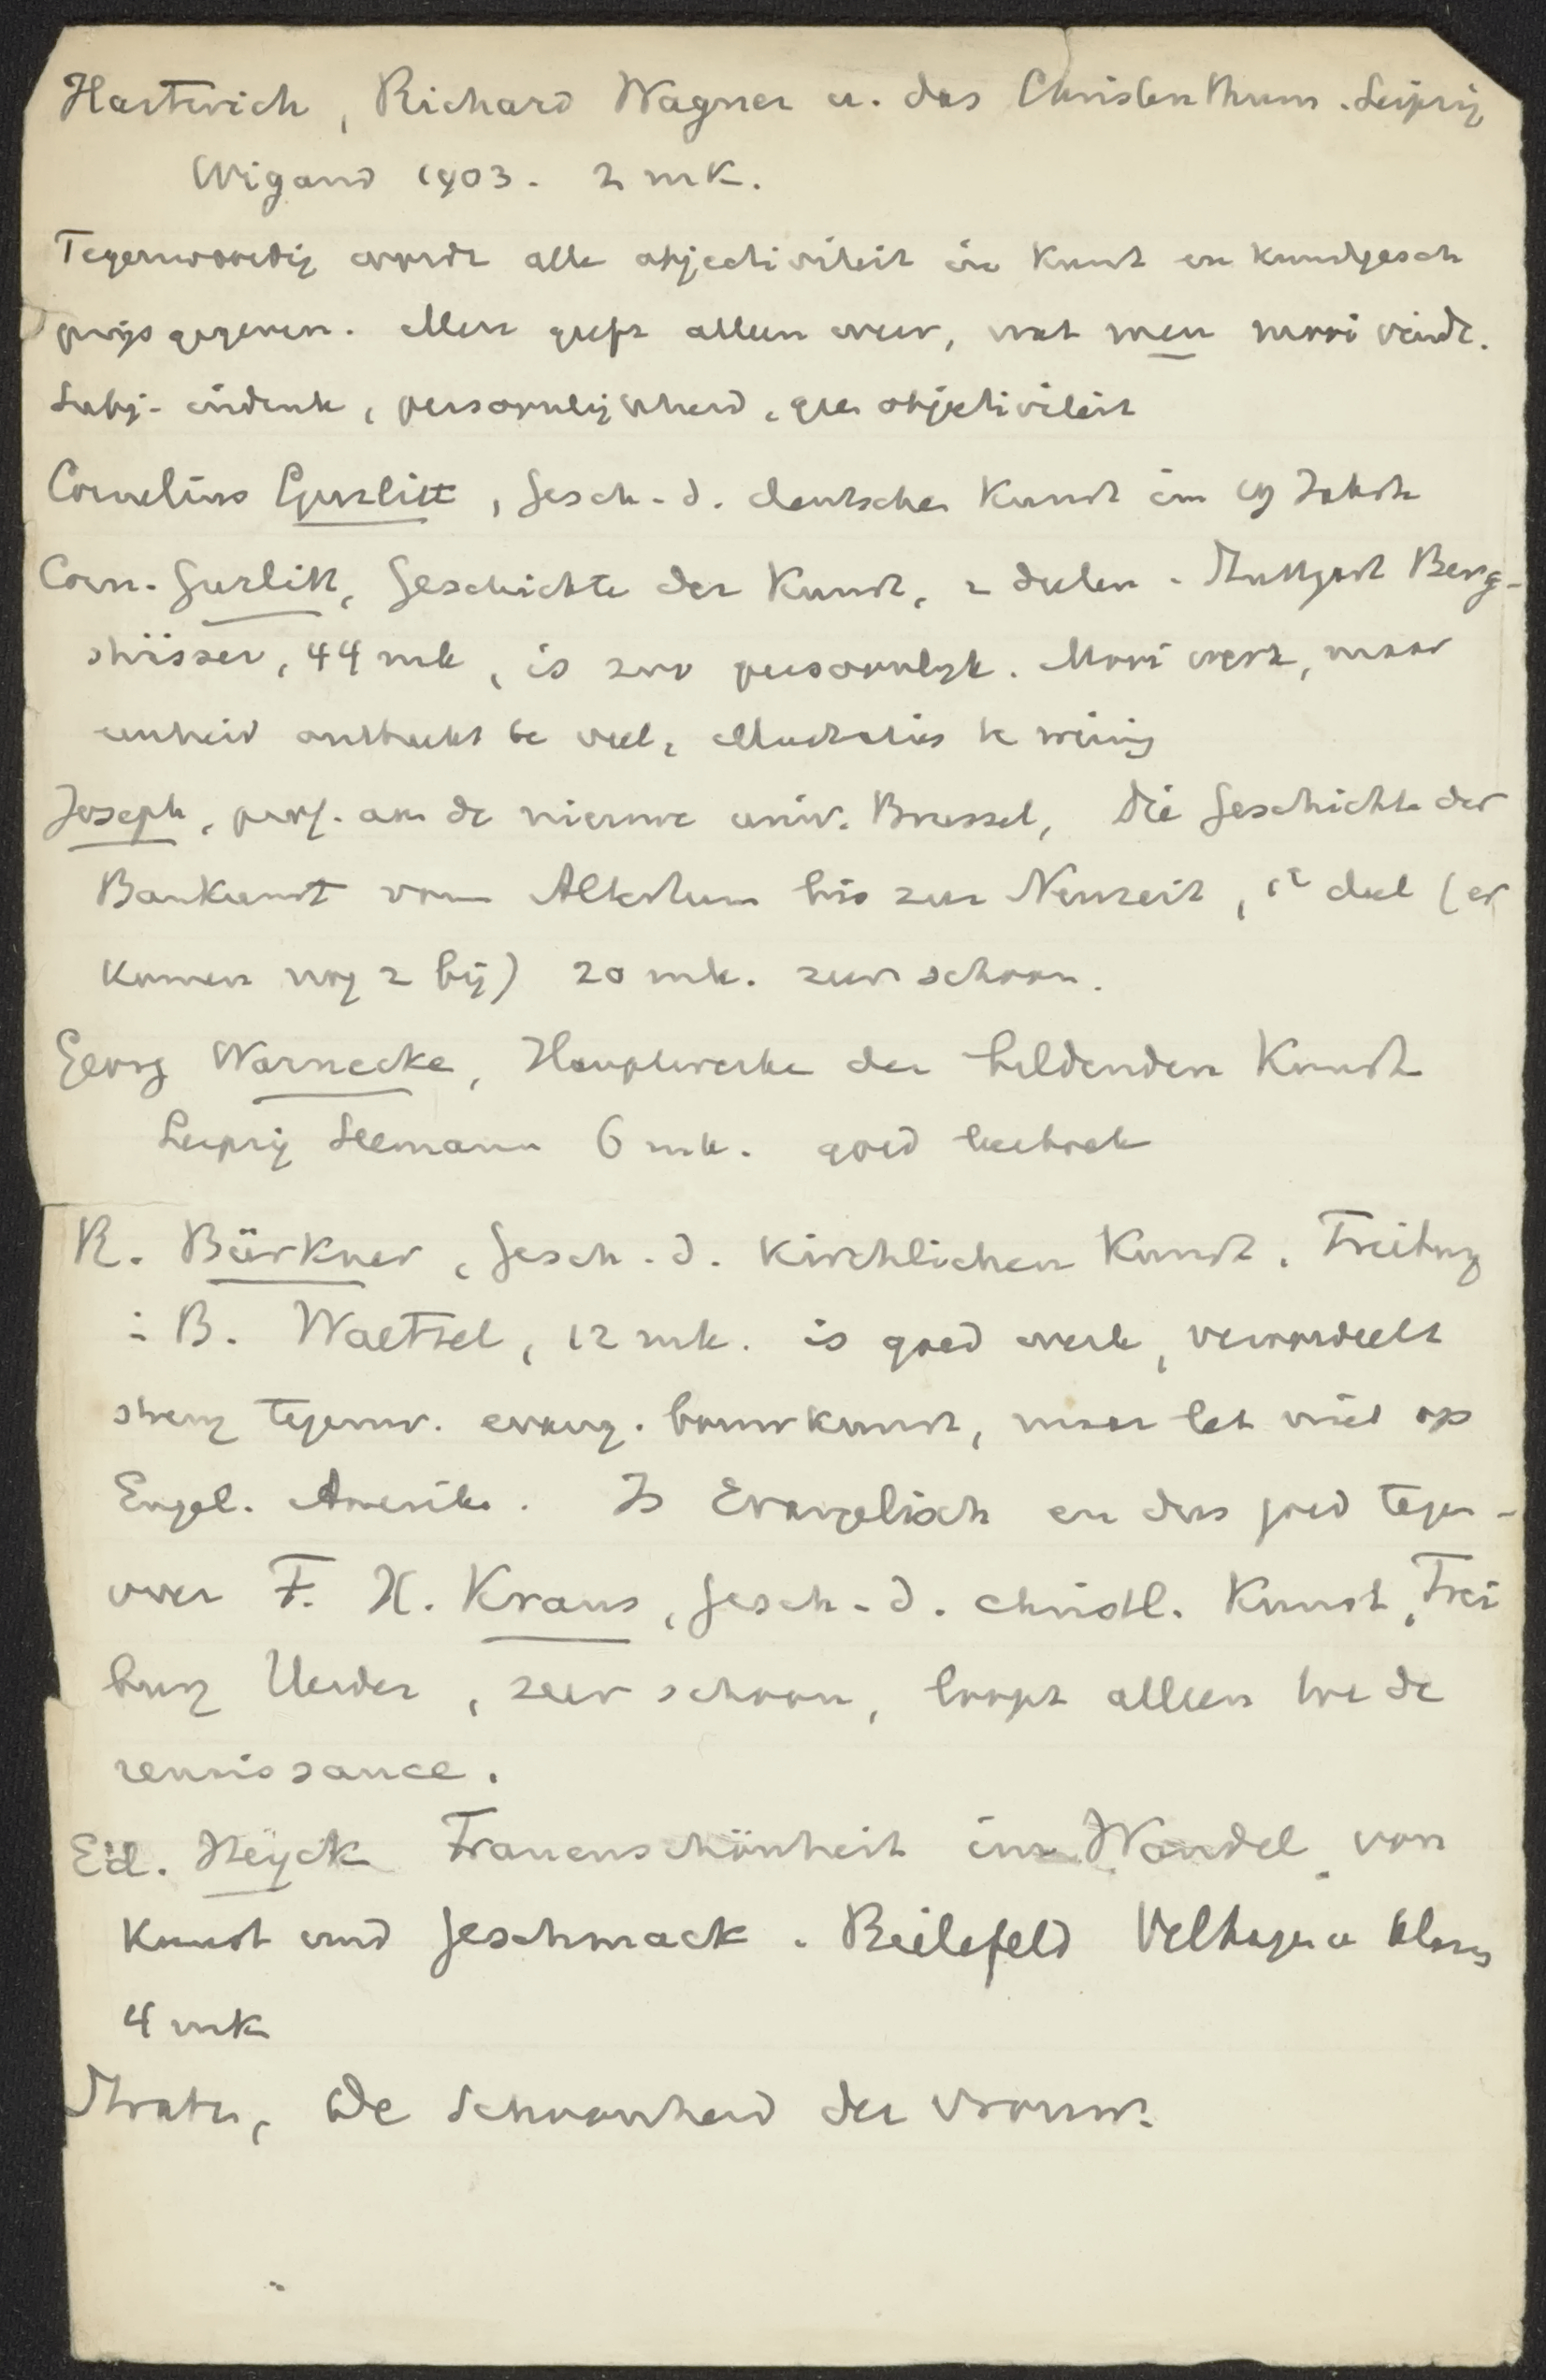 Hartwich, Richard Wagner u. das Christenthum. Leipzig
Wigand 1903. 2 mk.
Tegenwoordig wordt alle objectiviteit in kunst en kunstgesch
prijs gegeven. Men geeft alleen weer, wat men mooi vindt.
Subj. indruk, persoonlijkheid, geen objectiviteit
Cornelius Gurlitt, Gesch. d. deutschen Kunst im 19 Jahrh
Corn. Gurlitt, Geschichte der Kunst, 2 deelen. Stuttgart Berg-
strässer, 44 mk, is zeer persoonlijk. Mooi werk, maar
eenheid ontbreekt te veel, illustraties te weinig
Joseph, prof. aan de nieuwe univ. Brussel, Die Geschichte der
Baukunst vom Altertum bis zur Neuzeit, 1e deel (er
komen nog 2 bij) 20 mk. zeer schoon.
Georg Warnecke, Hauptwerke der bildenden Kunst
Leipzig Seemann 6 mk. goed leerboek
R. Bürkner, Gesch. d. kirchlichen Kunst. Freiburg
i B. Waetzel, 12 mk. is goed werk, veroordeelt
streng tegenw. evang. bouwkunst, maar let niet op
Engel. Amerika. Is Evangelisch en dus goed tegen-
over F. X. Kraus, Gesch. d. christl. Kunst, Frei
burg Herder, zeer schoon, loopt alleen tot de
renaissance.
Ed. Heyck Frauenschönheit im Wandel von
Kunst und Geschmack. Bielefeld Velhagen u Klasing
4 mk
Stratz, De Schoonheid der vrouw.